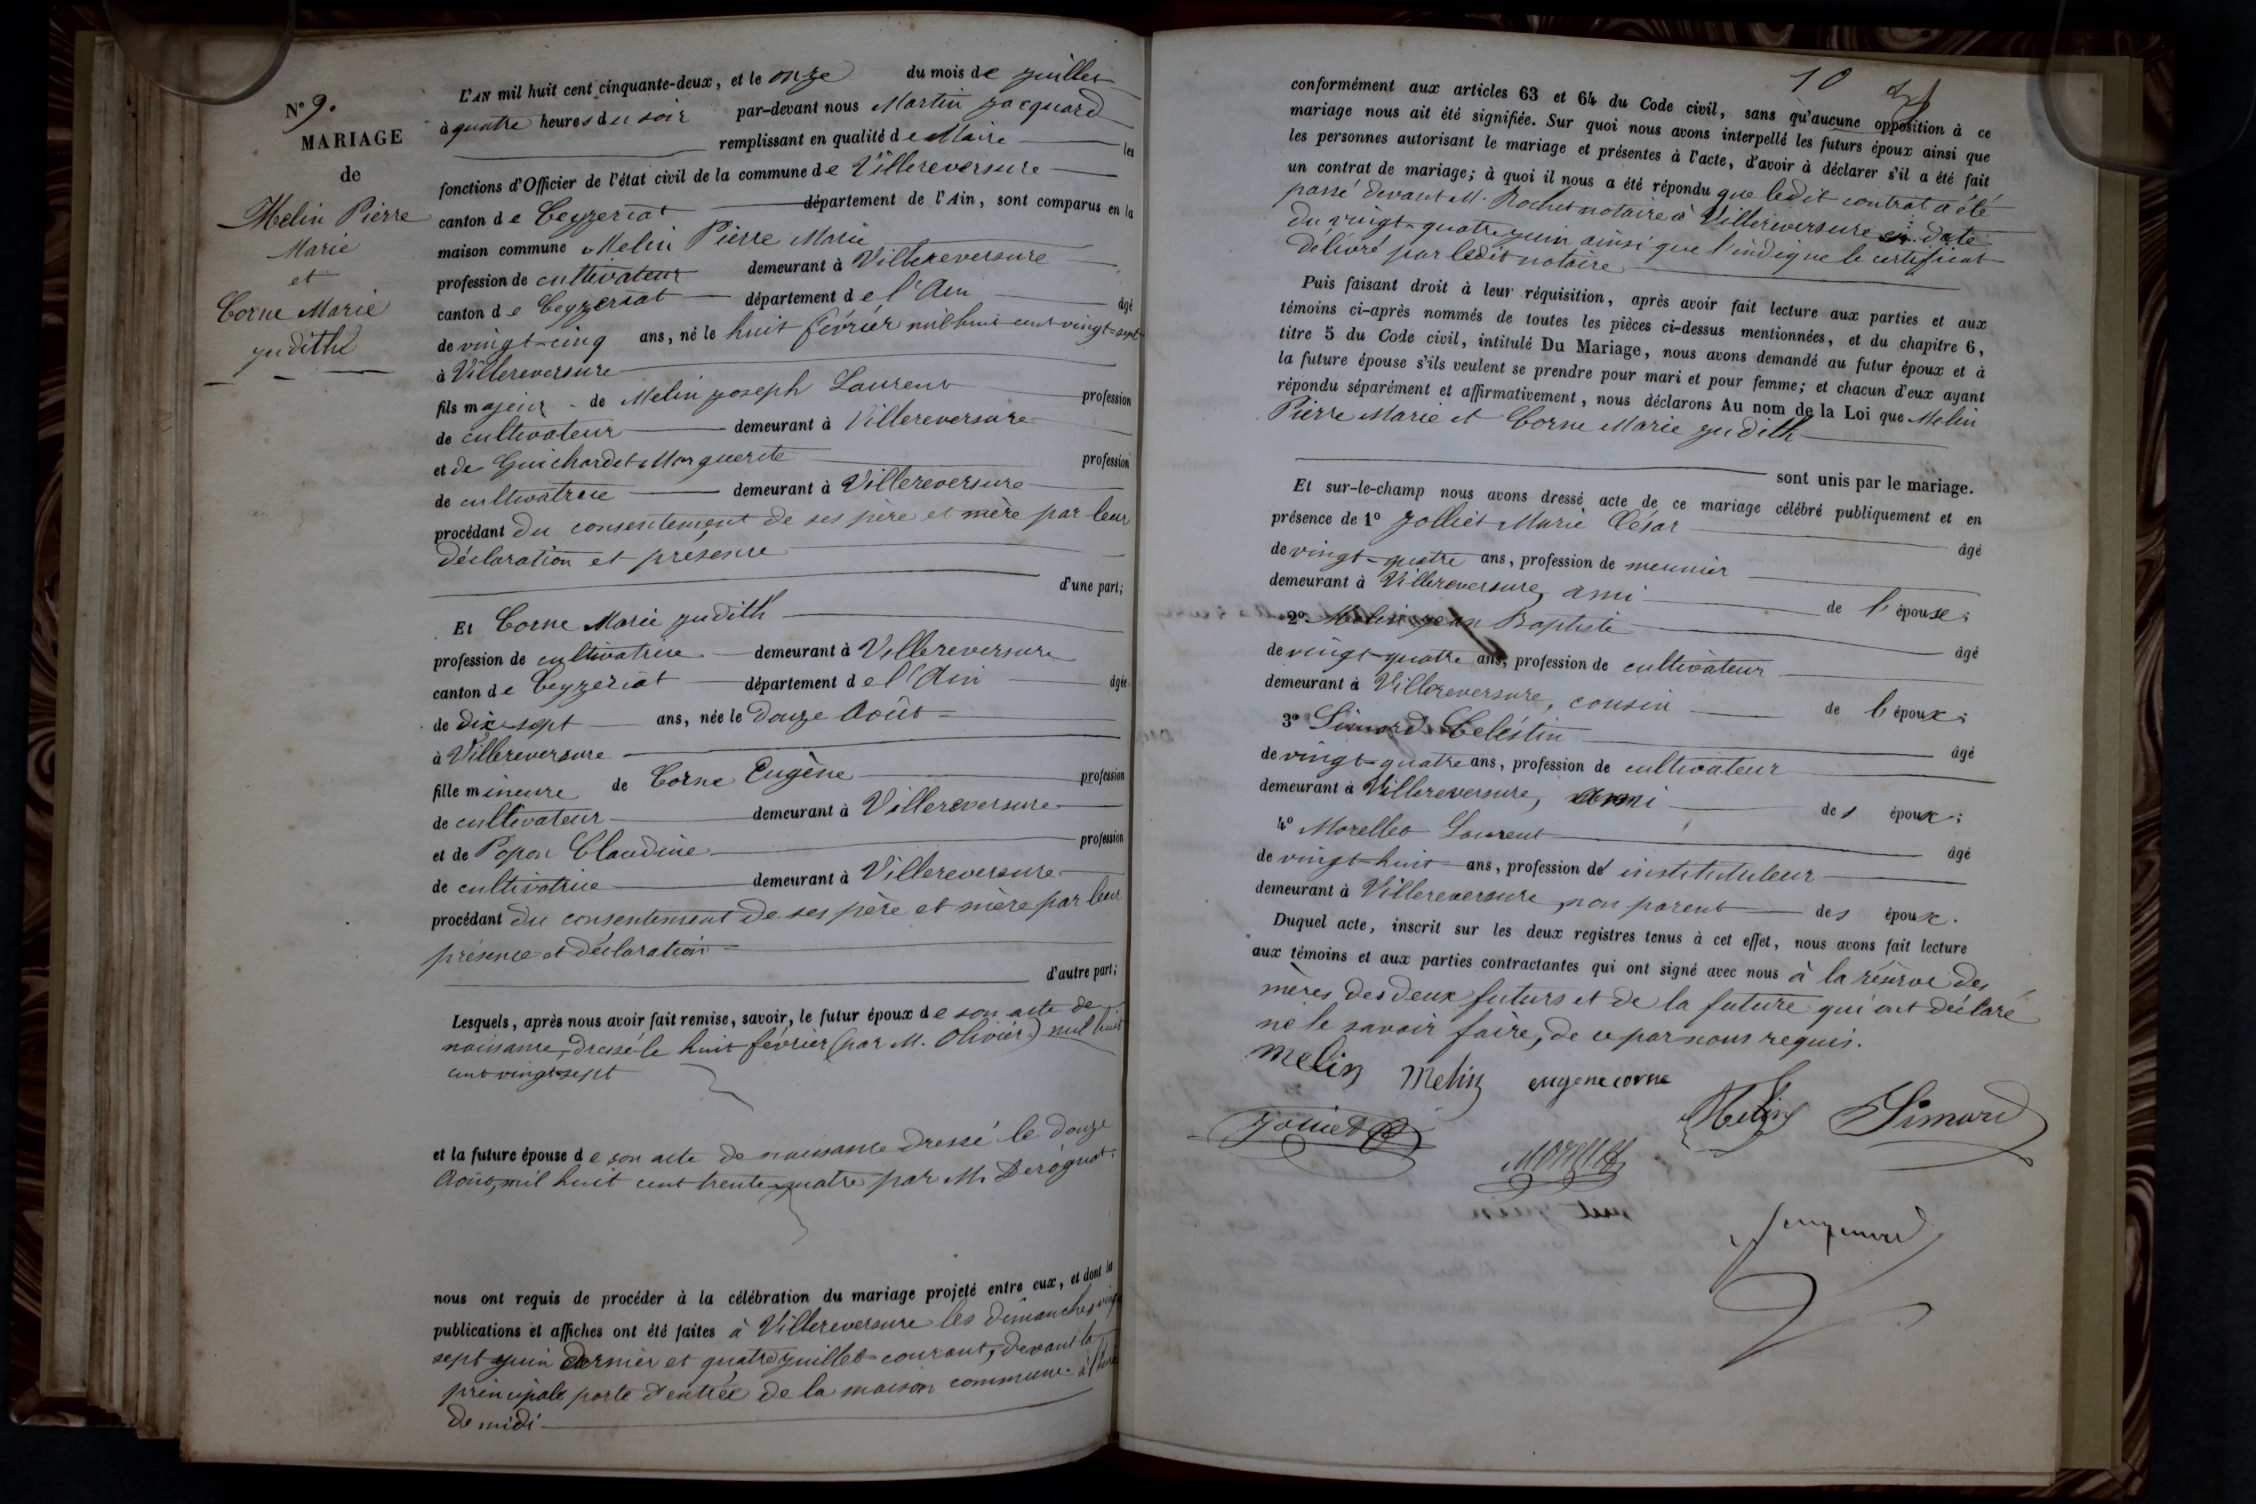 N° 9.
MARIAGE
de
Melin Pierre
Marie
et
Corne Marie
Judith
L'AN mil huit cent cinquante-deux, et le onze du mois de juillet
à quatre heures du soir par-devant nous Martin Jacquard
remplissant en qualité de Maire les
fonctions d'Officier de l'état civil de la commune de Villereversure
canton de Ceyzeriat département de l'Ain, sont comparus en la
maison commune Melin Pierre Marie
profession de cultivateur demeurant à Villereversure
canton de Ceyzeriat département de l'Ain âgé
de vingt-cinq ans, né le huit février mil huit cent vingt-sept
à Villereversure
fils majeur de Melin Joseph Laurent profession
de cultivateur demeurant à Villereversure
et de Guichardet Marguerite profession
de cultivatrice demeurant à Villereversure
procédant du consentement de ses père et mère par leur
déclaration et présence
d'une part;
Et Corne Marie Judith
profession de cultivatrice demeurant à Villereversure
canton de Ceyzeriat département de l'Ain âgée
de dix-sept ans, née le douze Août
à Villereversure
fille mineure de Corne Eugène profession
de cultivateur demeurant à Villereversure
et de Popon Claudine profession
de cultivatrice demeurant à Villereversure
procédant du consentement de ses père et mère par leur
présence et déclaration
d'autre part;
Lesquels, après nous avoir fait remise, savoir, le futur époux de son acte de
naissance, dressé le huit février (par M. Olivier) mil huit
cent vingt-sept
et la future épouse de son acte de naissance dressé le douze
Août, mil huit cent trente-quatre par M. Derognat.
nous ont requis de procéder à la célébration du mariage projeté entre eux, et dont les
publications et affiches ont été faites à Villereversure les dimanches vingt
sept juin dernier et quatre juillet courant, devant la
principale porte d'entrée de la maison commune à l'heure
de midi
10
conformément aux articles 63 et 64 du Code civil, sans qu'aucune opposition à ce
mariage nous ait été signifiée. Sur quoi nous avons interpellé les futurs époux ainsi que
les personnes autorisant le mariage et présentes à l'acte, d'avoir à déclarer s'il a été fait
un contrat de mariage; à quoi il nous a été répondu que ledit contrat a été
passé devant M. Rochet notaire à Villereversure en date
du vingt-quatre juin ainsi que l'indique le certificat
délivré par ledit notaire
Puis faisant droit à leur réquisition, après avoir fait lecture aux parties et aux
témoins ci-après nommés de toutes les pièces ci-dessus mentionnées, et du chapitre 6,
titre 5 du Code civil, intitulé Du Mariage, nous avons demandé au futur époux et à
la future épouse s'ils veulent se prendre pour mari et pour femme; et chacun d'eux ayant
répondu séparément et affirmativement, nous déclarons Au nom de la Loi que Melin
Pierre Marie et Corne Marie Judith
sont unis par le mariage.
Et sur-le-champ nous avons dressé acte de ce mariage célébré publiquement et en
présence de 1° Jolliet Marie César âgé
de vingt-quatre ans, profession de meunier
demeurant à Villereversure, ami de l'épouse;
2° Melin Jean Baptiste âgé
de vingt-quatre ans, profession de cultivateur
demeurant à Villereversure, cousin de l'époux;
3° Simard Celéstin âgé
de vingt-quatre ans, profession de cultivateur
demeurant à Villereversure, ami des époux;
4° Morellet Laurent âgé
de vingt-huit ans, profession d'instituteur
demeurant à Villereversure, non parent des époux.
Duquel acte, inscrit sur les deux registres tenus à cet effet, nous avons fait lecture
aux témoins et aux parties contractantes qui ont signé avec nous à la réserve des
mères des deux futurs et de la future qui ont déclaré
ne le savoir faire, de ce par nous requis.
Melin Melin eugene corne
Jolliet Melin Simard
Morellet
Jacquard